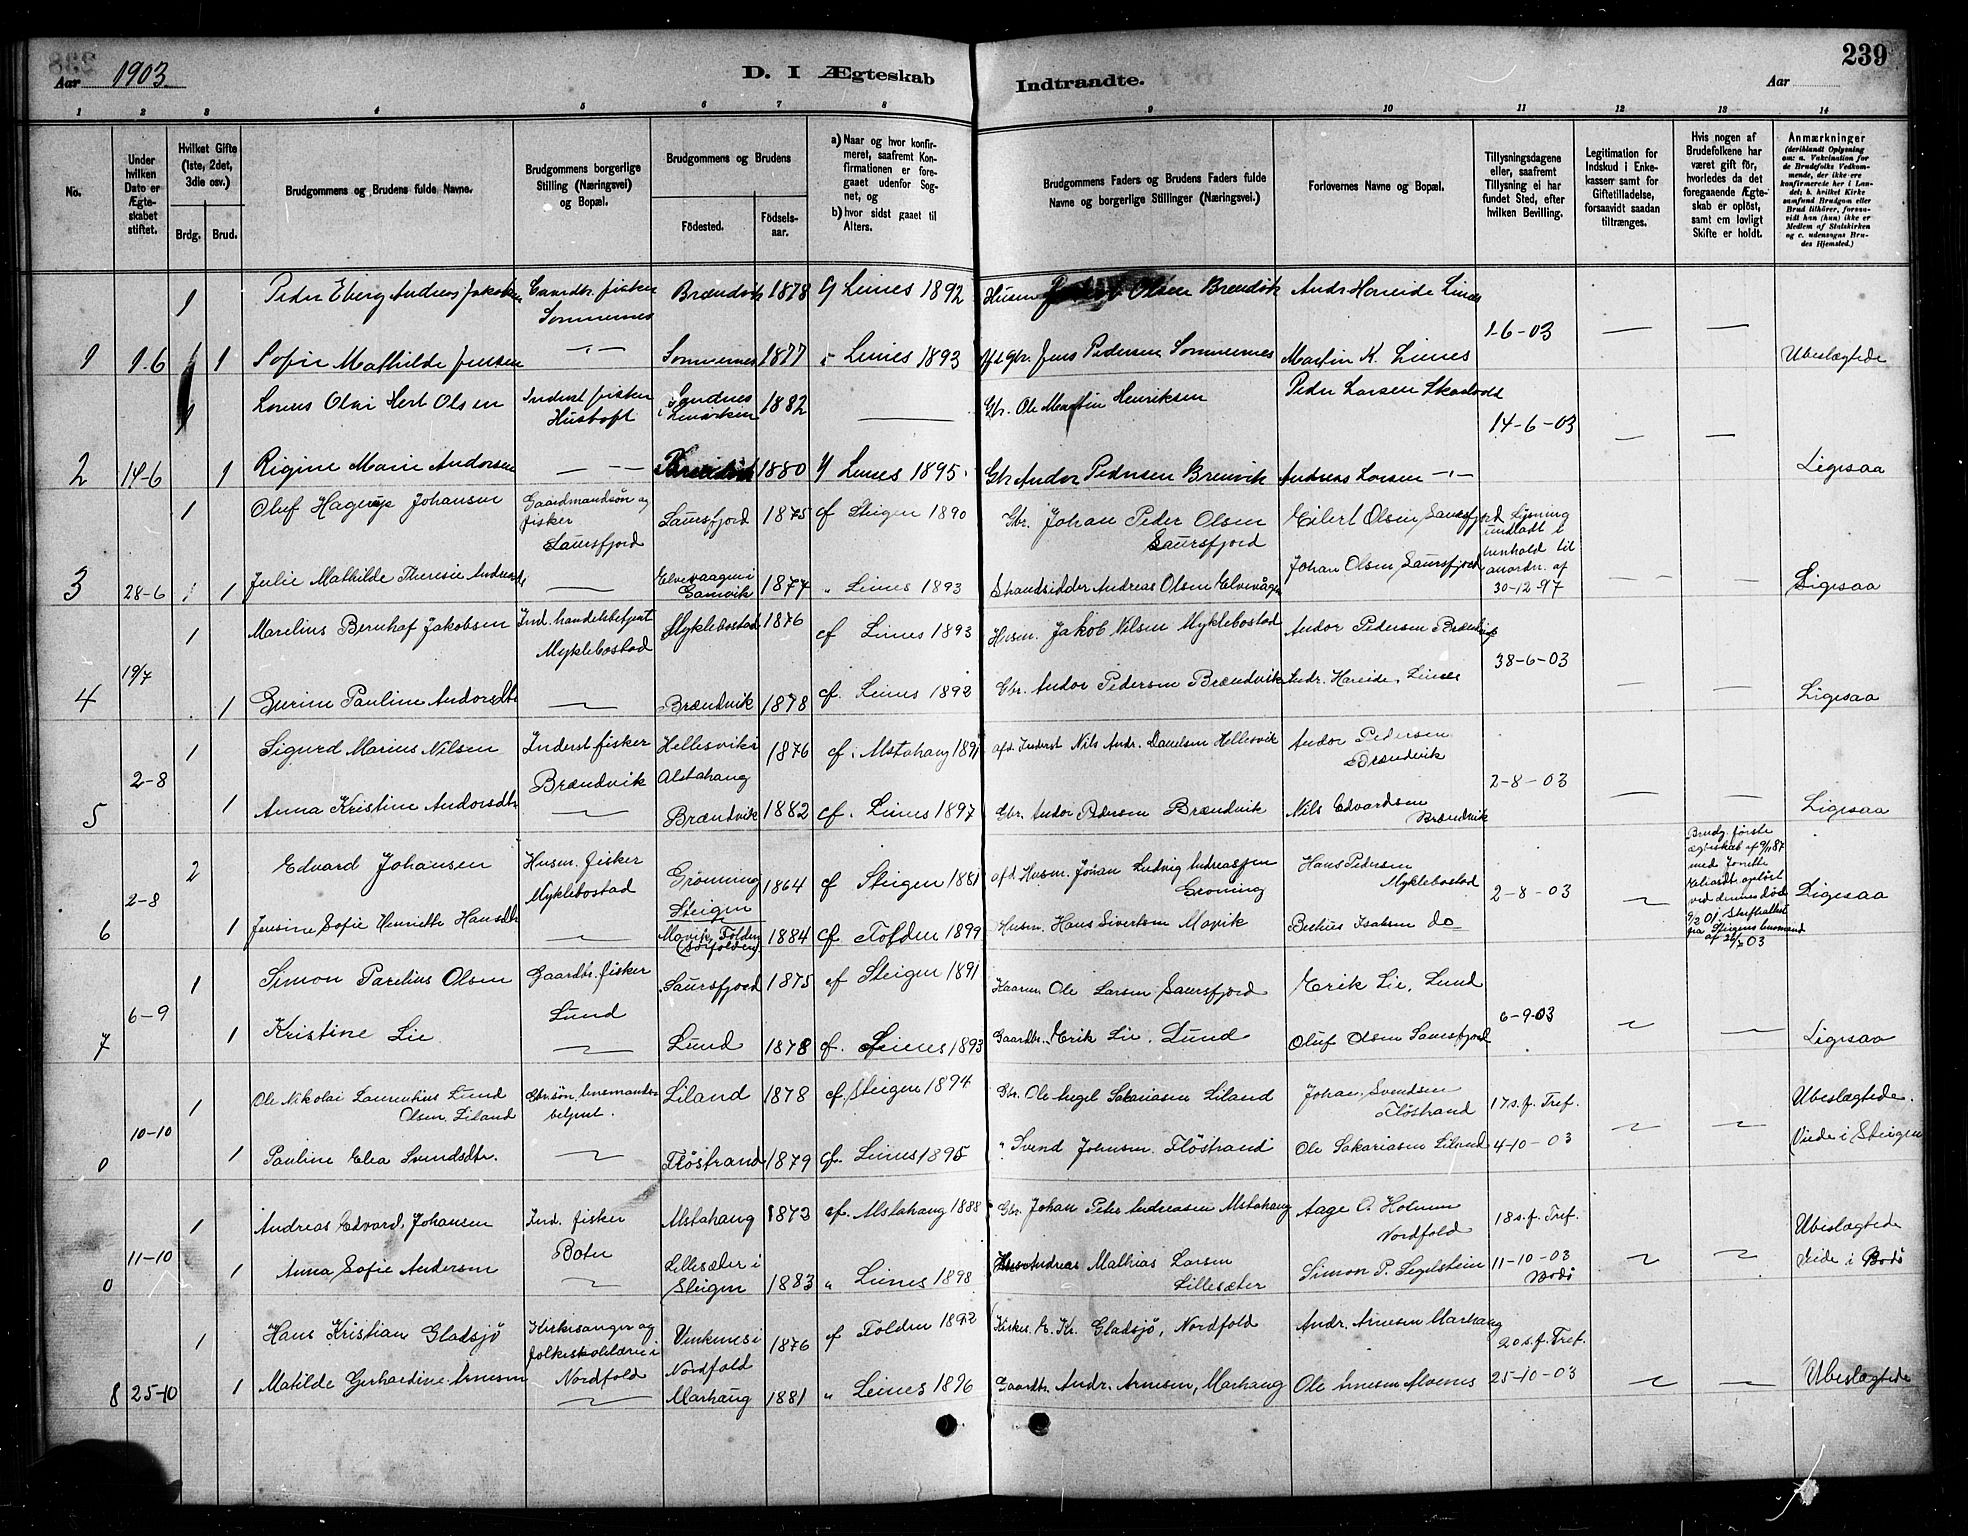 Aar 1903.
D. I Ægteskab Indtraadte.
Aar
239
1 2 3 4 5 6 7 8 9 10 11 12 13 14
No.
Under hvilken Dato er Ægteskabet stiftet.
Hvilket Gifte (1ste, 2det, 3die osv.)
Brdg. Brud.
Brudgommens og Brudens fulde Navne.
Brudgommens borgerlige Stilling (Næringsvei) og Bopæl.
Brudgommens og Brudens
Fødested. Fødselsaar.
a) Naar og hvor konfirmeret, saafremt Konfirmationen er foregaaet udenfor Sognet, og
b) hvor sidst gaaet til Alters.
Brudgommens Faders og Brudens Faders fulde Navne og borgerlige Stillinger (Næringsvei.)
Forlovernes Navne og Bopæl.
Tillysningsdagene eller, saafremt Tillysning ei har fundet Sted, efter hvilken Bevilling.
Legitimation for Indskud i Enkekassen samt for Giftetilladelse, forsaavidt saadan tiltrænges.
Hvis nogen af Brudefolkene har været gift før, hvorledes da det foregaaende Ægteskab er opløst, samt om lovligt Skifte er holdt.
Anmærkninger
(deriblandt Oplysning om: a. Vakcination for de Brudefolks Vedkommende, der ikke ere konfirmerede her i Landet; b. hvilket Kirkesamfund Brudgom eller Brud tilhører, forsavidt han (hun) ikke er Medlem af Statskirken og c. udensogns Brudes Hjemsted.)
1 Peder Eberg Andreas Jakobsen Gaardbr. fisker Sommernes Brændvik 1878 Leines 1892 Husm. Olsen Brændvik Andr Hareide Leines
1-6-03
1 1-6 1 Sofie Mathilde Jensen Sommernes 1877 Leines 1893 Gbr. Jens Pedersen Sommernes Martin K. Leines Ubeslægtede
Olai Olsen Inderst fisker Hustoft Sandnes i 1882 Gbr. Ole Martin Henriksen Peder Larsen
14-6-03
2 14-6 1 Rigine Marie Andorsen 1880 Leines 1895 Gbr Andor Pedersen Brenvik Andreas Larsen Ligesaa
1 Oluf Hagerup Johansen Gaardmandsøn og fisker Laursfjord Saursfjord 1875 cf Steigen 1890 Gbr. Johan Peder Olsen Saursfjord Eilert Olsen, Saursfjord Lysning undladt i henhold til anordn. af 30-12-97
3 28-6 1 1 Julie Mathilde Theresie Elvevaagen i Gamvik 1877 " Leines 1893 Strandsidder Andreas Olsen Elvevågen Johan Olsen, Saursfjord Ligesaa
1 Marelius Bernhof Jakobsen Ind. handelsbetjent Myklebostad Myklebostad 1876 cf Leines 1893 Husm. Jakob Nilsen Myklebostad Andor Pedersen Brændvik
38-6-03
4 19/7 1 Gurine Pauline Andorsdtr Brændvik 1878 cf. Leines 1892 Gbr. Andor Pedersen Brændvik Andr. Hareide, Leines Ligesaa
1 Sigurd Marius Nilsen Inderst fisker Brændvik Hellesvik i Alstahaug 1876 cf. Alstahaug 1891 afd. Inderst Nils Andr. Danielsen Hellesvik Andor Pedersen Brændvik
2-8 2-8-03
5 1 Anna Kristine Andorsdtr Brændvik 1882 cf. Leines 1897 Gbr. Andor Pedersen Brændvik Nils Edvardsen Brændvik Ligesaa
2 Edvard Johansen Husm. fisker Myklebostad Grønning Steigen 1864 cf Steigen 1881 afd. Husm. Johan Ludvig Andreassen Grøning Hans Pedersen Myklebostad
2-8 2-8-03 Brudg. første ægteskab af 9/11 87 med opløst ved dennes død 01 Skifteattest fra Steigens lensmand af 03 Ligesaa
6 1 Jensine Sofie Henriette Hansdtr Mavik, Folden (Sørfolden) 1884 cf. Folden 1899 Husm. Hans Sivertsen Mavik do
1 Simon Parelius Olsen Gaardbr. fisker Lund Saursfjord 1875 cf Steigen 1891 Ole Larsen Saursfjord Erik Lie, Lund
6-9 6-9-03
7 1 Kristine Lie. Lund 1878 cf. Leines 1893 Gaardbr. Erik Lie, Lund Oluf Olsen Saursfjord Ligesaa
1 Ole Nikolai Laurentius Lund Olsen, Liland Gbr.søn, lensmandsbetjent. Liland 1878 cf. Steigen 1894 Gbr. Ole Angel Sakariasen Liland Johan Svendsen Fløstrand 17 s. f. Tref. Ubeslægtede.
10-10 Viede i Steigen
0 1 Pauline Elea Svendsdtr. Fløstrand 1879 cf. Leines 1895 " Svend Johnsen Fløstrand Ole Sakariasen Liland 4-10-03
1 Andreas Edvard Johansen Ind. fisker Boten Alstahaug 1873 cf. Alstahaug 1888 Gbr. Johan Peter Andreasen Alstahaug Aage O. Holmen Nordfold 18 s. f. Tref. Ubeslægtede
11-10 11-10-03 Bodø Viede i Bodø
0 1 Anna Sofie Andersen Lillesæter i Steigen 1883 " Leines 1898 Andreas Mathias Larsen Lillesæter Simon P. Segelstein
1 Hans Kristian Gladsjø Kirkesanger og folkeskolelærer i Nordfold Vinkenes i Nordfold 1876 cf Folden 1892 Kirkes. E. Kr. Gladsjø, Nordfold Andr. Arnesen Marhaug 20 s. f. Tref.
8 25-10 1 Matilde Gerhardine Arnesen Marhaug 1881 " Leines 1896 Gaardbr. Andr. Arnesen, Marhaug Ole Arnesen Alvenes 25-10-03 Ubeslægtede